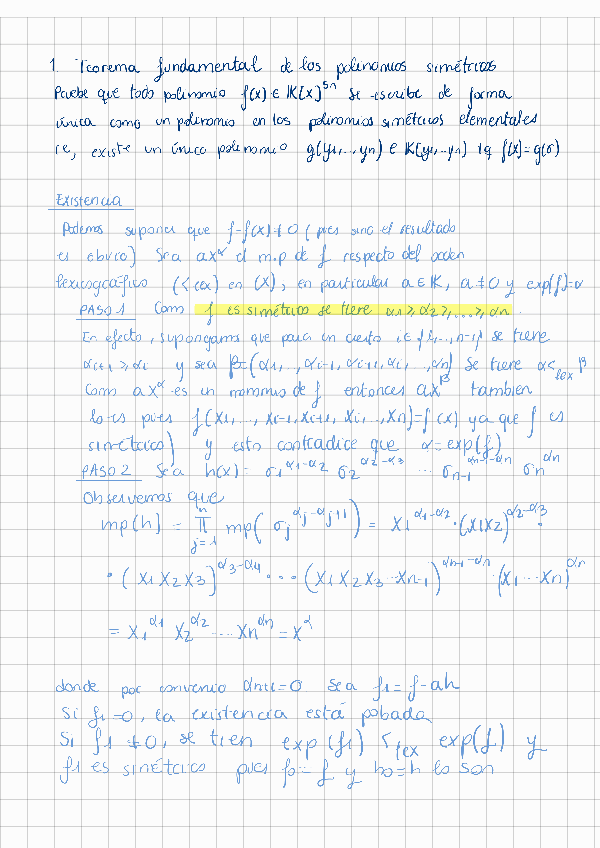 1. Teorema fundamental de los polinomios simétricos
Pruebe que todo polinomio f(x) ∈ K[x]^Sn se escribe de forma
única como un polinomio en los polinomios simétricos elementales
ie, existe un único polinomio g(y1,...,yn) ∈ K[y1,...yn) tq f(x)=g(σ)
Existencia
Podemos suponer que f=f(x)≠0 (pues sino el resultado
es obvio) Sea ax^α el m.p de f respecto del orden
lexicográfico (<lex) en (X), en particular a∈K, a≠0 y exp(f)=α
PASO 1 Como f es simétrico se tiene α1≥α2≥,...,≥αn.
En efecto, supongamos que para un cierto i∈{1,...,n-1} se tiene
αi+1>αi y sea β=(α1,..,αi-1,αi+1,αi,..,αn) Se tiene α<lex β
Como ax^α es un monomio de f entonces ax^β tambien
lo es pues f(x1,..., xi-1,xi+1,xi,..,xn)=f(x) ya que f es
simétrico) y esto contradice que α=exp(f)
PASO 2 Sea h(x)= σ1^α1-α2 σ2^α2-α3 ... σn-1^αn-1-αn σn^αn
Observemos que
mp(h) = ∏_{j=1}^n mp(σj^αj-αj+1) = x1^α1-α2·(x1x2)^α2-α3·
·(x1x2x3)^α3-α4 ··· (x1x2x3···xn-1)^αn-1-αn ·(x1···xn)^αn
= x1^α1 x2^α2 ....xn^αn = x^α
donde por convenio αn+1=0 Sea f1=f-ah
Si f1=0, la existencia está pobada
Si f1≠0, se tien exp(f1) <lex exp(f) y
f1 es simétrico pues f0=f y h0=h lo son